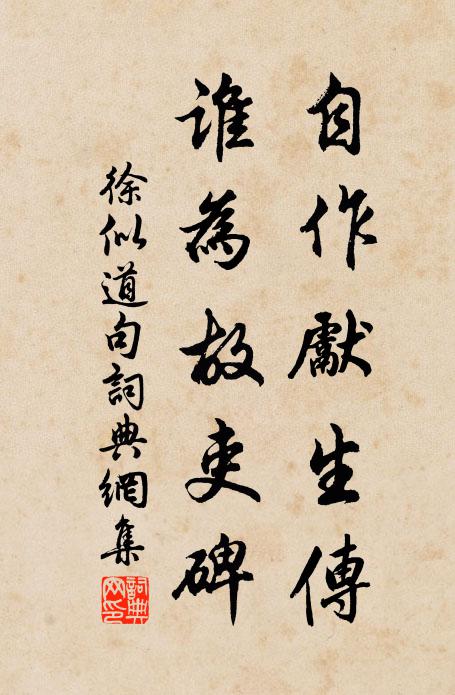 自作獻生傳
誰為故吏碑
徐似道句詞典網集
詞典網印